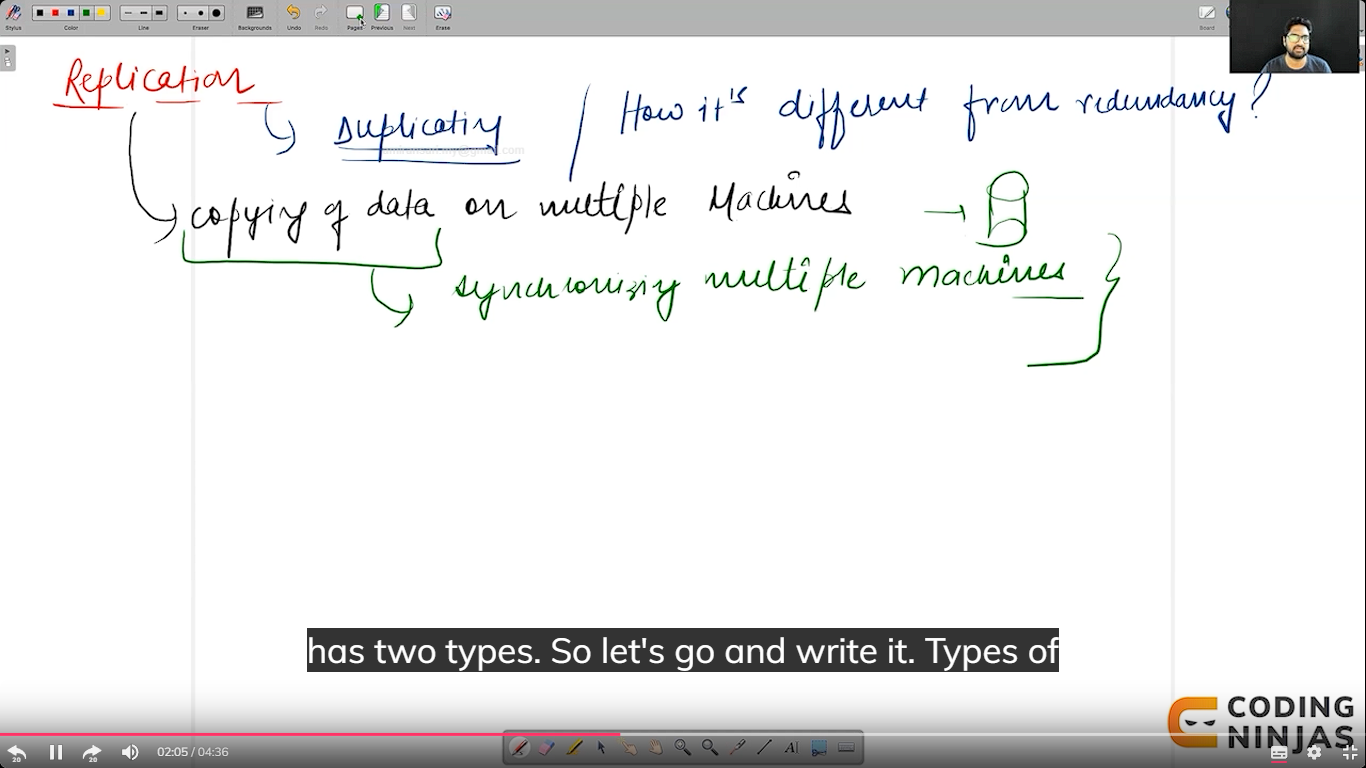 Stylus Color Line Eraser Backgrounds Undo Redo Pages Previous Next Erase Board
Replication
Duplicating / How it's different from redundancy?
copying of data on multiple Machines
synchronizing multiple machines
has two types. So let's go and write it. Types of
CODING
NINJAS
20 20 02:05 / 04:36